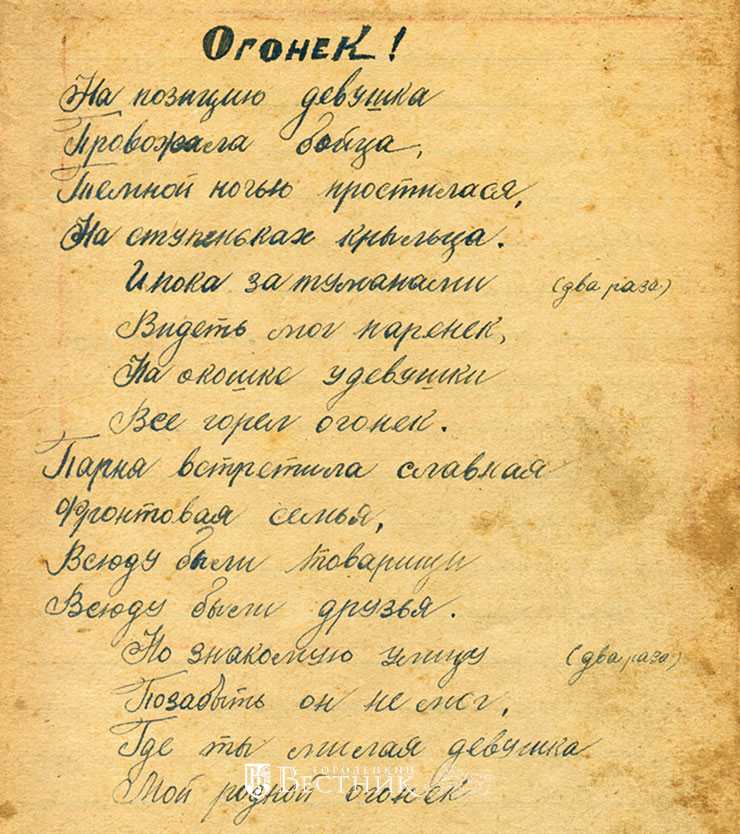 Огонек!
На позицию девушка
Провожала бойца,
Темной ночью простилася,
На ступеньках крыльца.
И пока за туманами (два раза)
Видеть мог паренек,
На окошке у девушки
Все горел огонек.
Парня встретила славная
Фронтовая семья,
Всюду были товарищи
Всюду были друзья.
Но знакомую улицу (два раза)
Позабыть он не мог,
Где ты милая девушка
Мой родной огонек
ГОРОДЕЦКИЙ
ВЕСТНИК